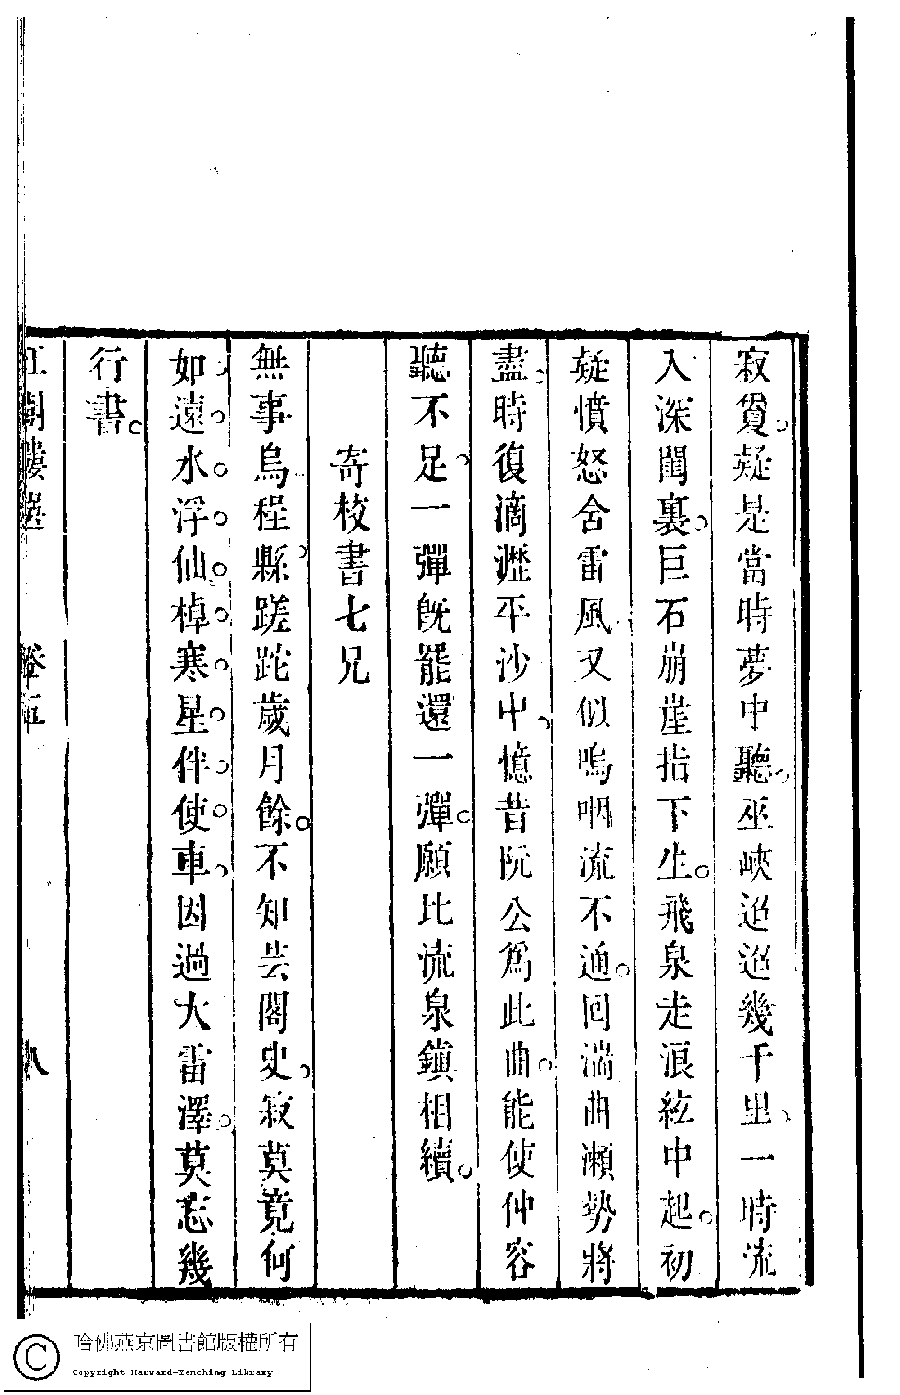 寂夐。疑是當時夢中聽、巫峽迢迢幾千里、一時流
入深閨裏、巨石崩崖指下生。飛泉走浪絃中起。初
疑憤怒含雷風又似嗚咽流不通。回湍曲瀨勢將
盡。時復滴瀝平沙中、憶昔阮公爲此曲。能使仲容
聽不足、一彈旣罷還一彈。願比流泉鎭相續。
寄校書七兄
無事烏程縣、蹉跎歲月餘。不知芸閣史、寂莫竟何
如、遠。水。浮。仙。棹。寒。星。伴。使。車、因過大雷澤。莫忘幾
行書。
八
哈佛燕京圖書館版權所有
Copyright Harvard-Yenching Library